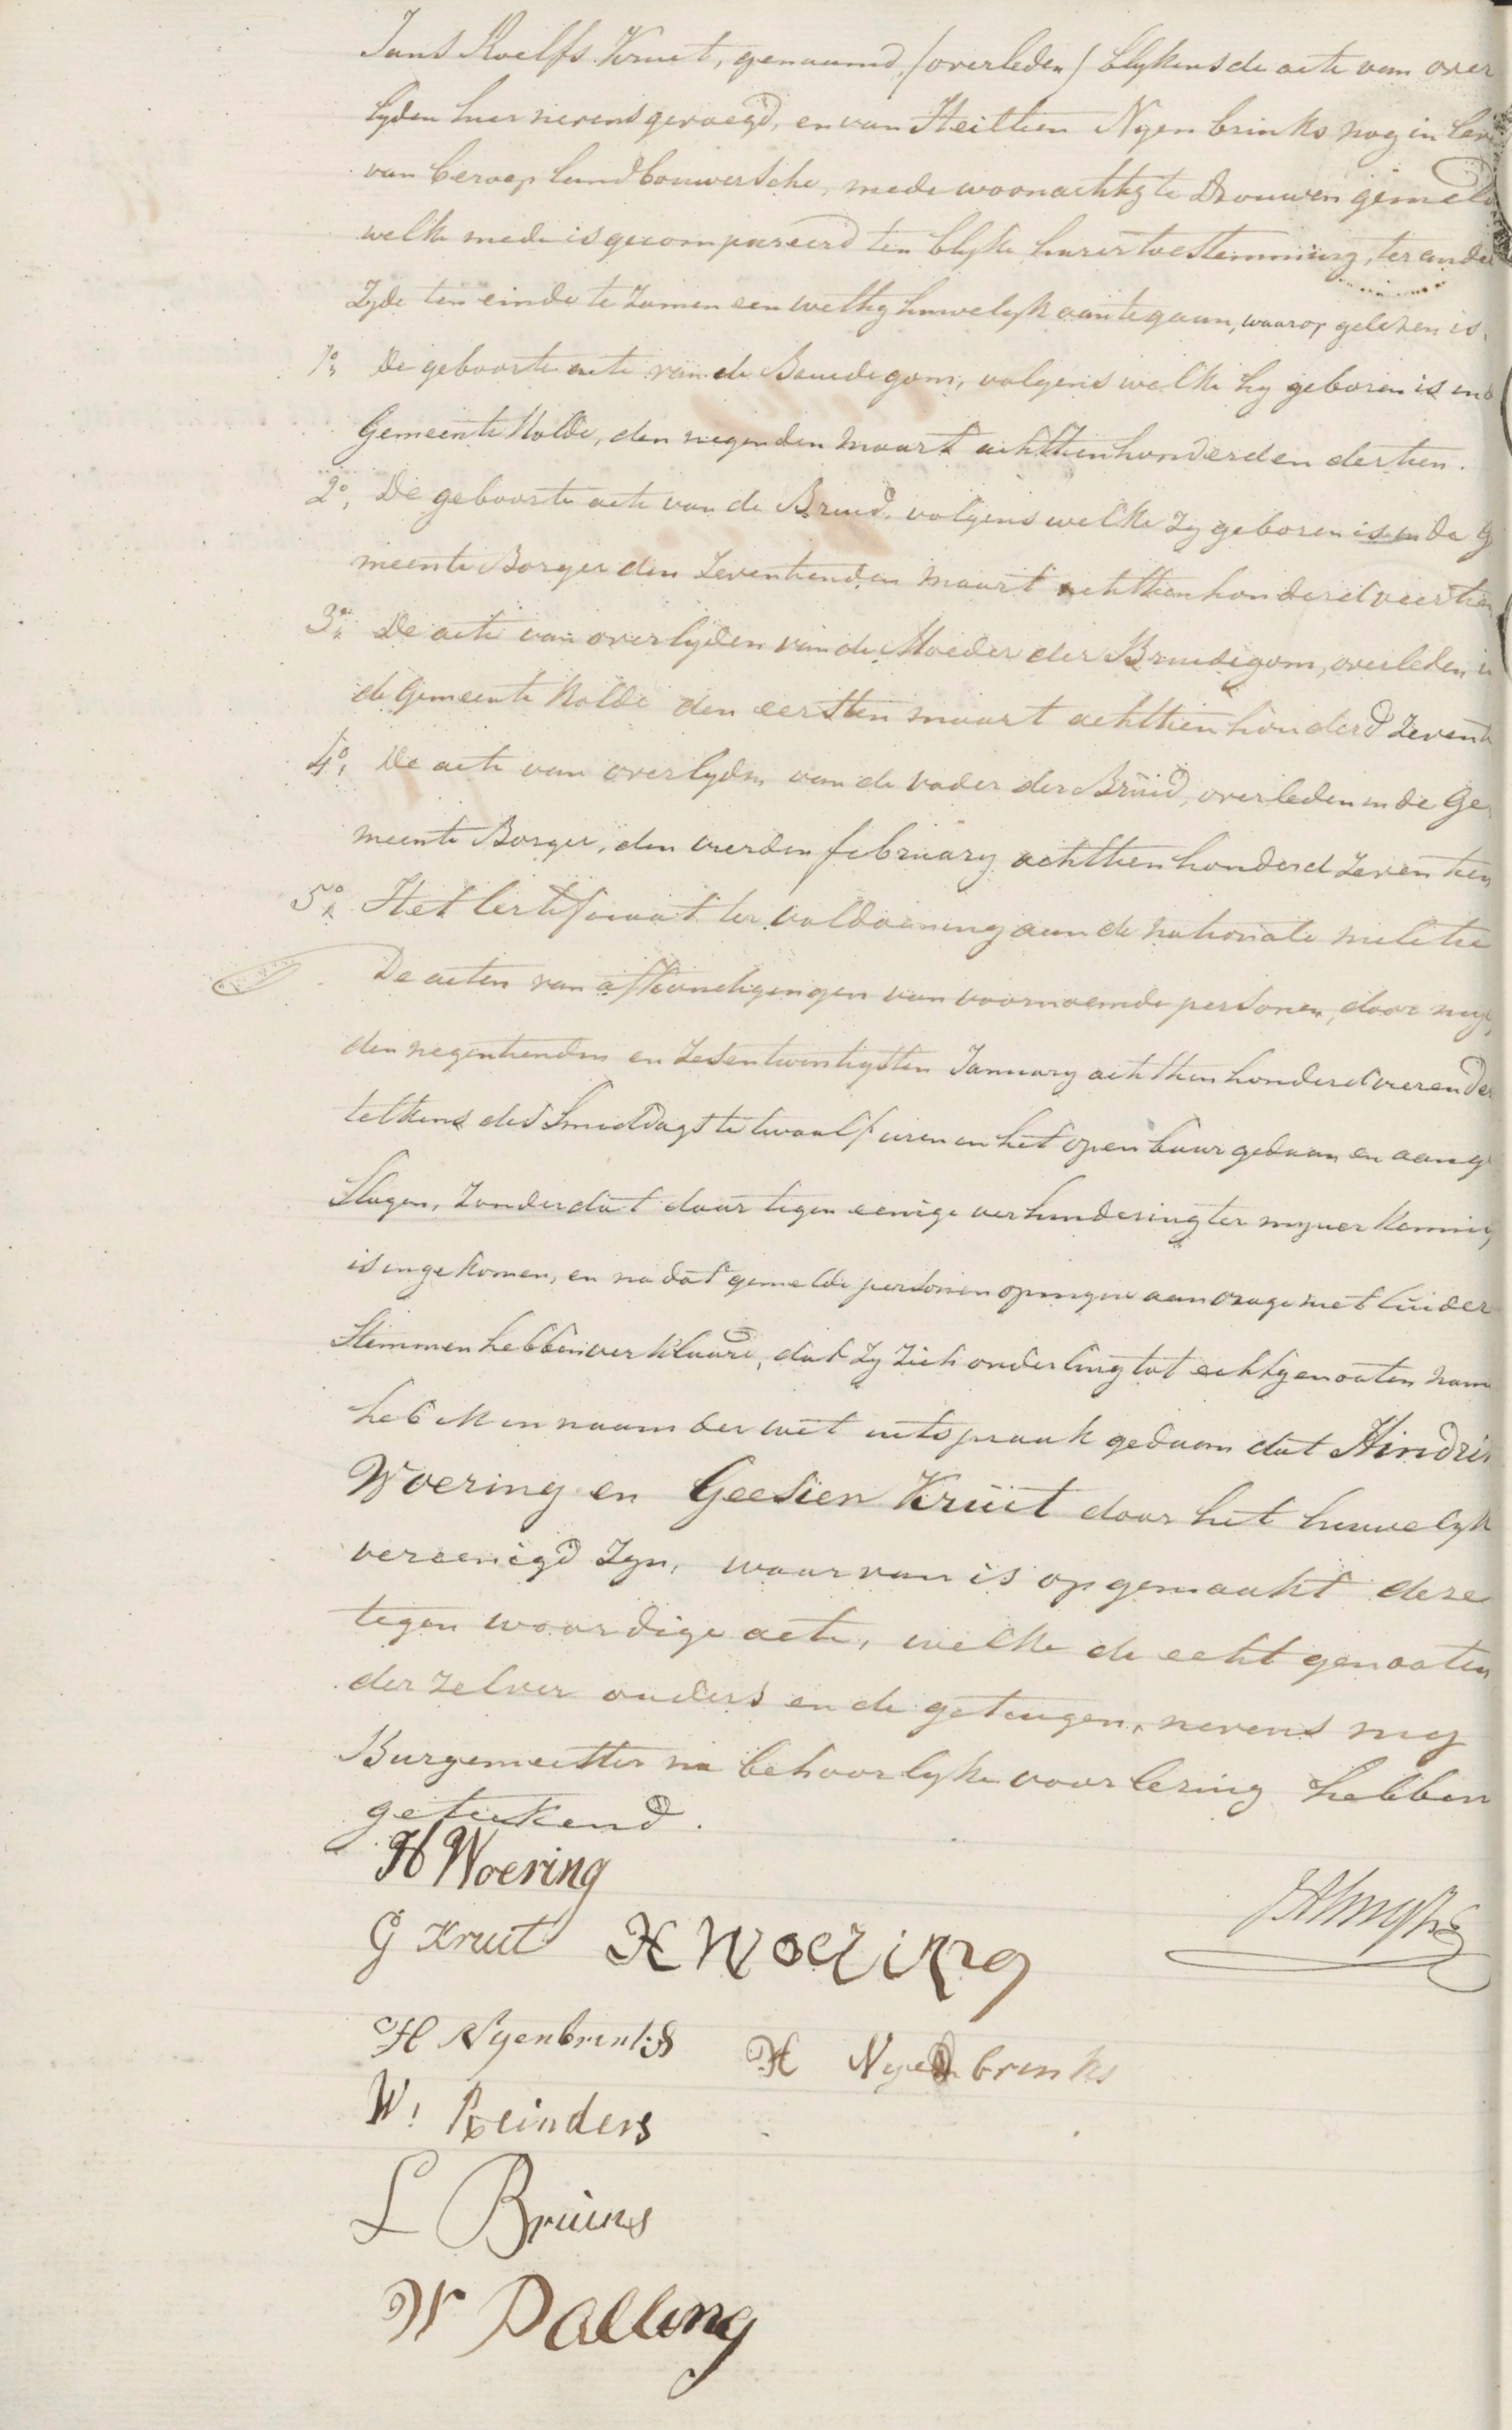 Jans Roelfs Kruit, genaamd, (overleden) blykens de acte van over
lyden hier nevens gevoegd, en van Heiltien Nyenbrinks nog in leve
van beroep landbouwersche, mede woonachtig te Drouwen gemeld
welke mede is gecompareerd ten blyke harer toestemming, ter ander
Zyde ten einde te zamen een wettig huwelyk aantegaan, waarop gelezen is,
1o, De geboorte acte van de Bruidegom, volgens welke hy geboren is in d
Gemeente Rolde, den negenden maart achttienhonderd en dertien.
2o, De geboorte acte van de Bruid, volgens welke zy geboren is in de G
meente Borger den zeventienden maart achttienhonderd veertien
3o, De acte van overlyden van de Moeder der Bruidegom, overleden i
de Gemeente Rolde den eersten maart achttienhonderd zevent
4o, De acte van overlyden van de vader der Bruid, overleden in de Ge
meente Borger, den vierden february achttienhonderd zeventien
5o, Het Certificaat ter voldoening aan de nationale militie
De acten van afkondigingen van voornoemde personen, door my
den negentienden en zesentwintigsten January achttienhonderd vierender
telkens des smiddags te twaalf uren in het openbaar gedaan en aange
slagen, zonder dat daar tegen eenige verhindering ter myner kennis
is ingekomen, en na dat gemelde personen op myne aanvrage met luider
Stemmen hebben verklaard, dat zy zich onderling tot echtgenooten nam
heb ik in naam der wet uitspraak gedaan dat Hindrik
Woering en Geesien Kruit door het huwelyk
vereenigd zyn, waarvan is opgemaakt deze
tegenwoordige acte, welke de echtgenooten
derzelver ouders en de getuigen, nevens my
Burgemeester na behoorlyke voorlezing hebben
geteekend.
H Woering
G Kruit H Woering
H Nyenbrinks H Nyenbrinks
W. Reinders
L Bruins
W Dalling